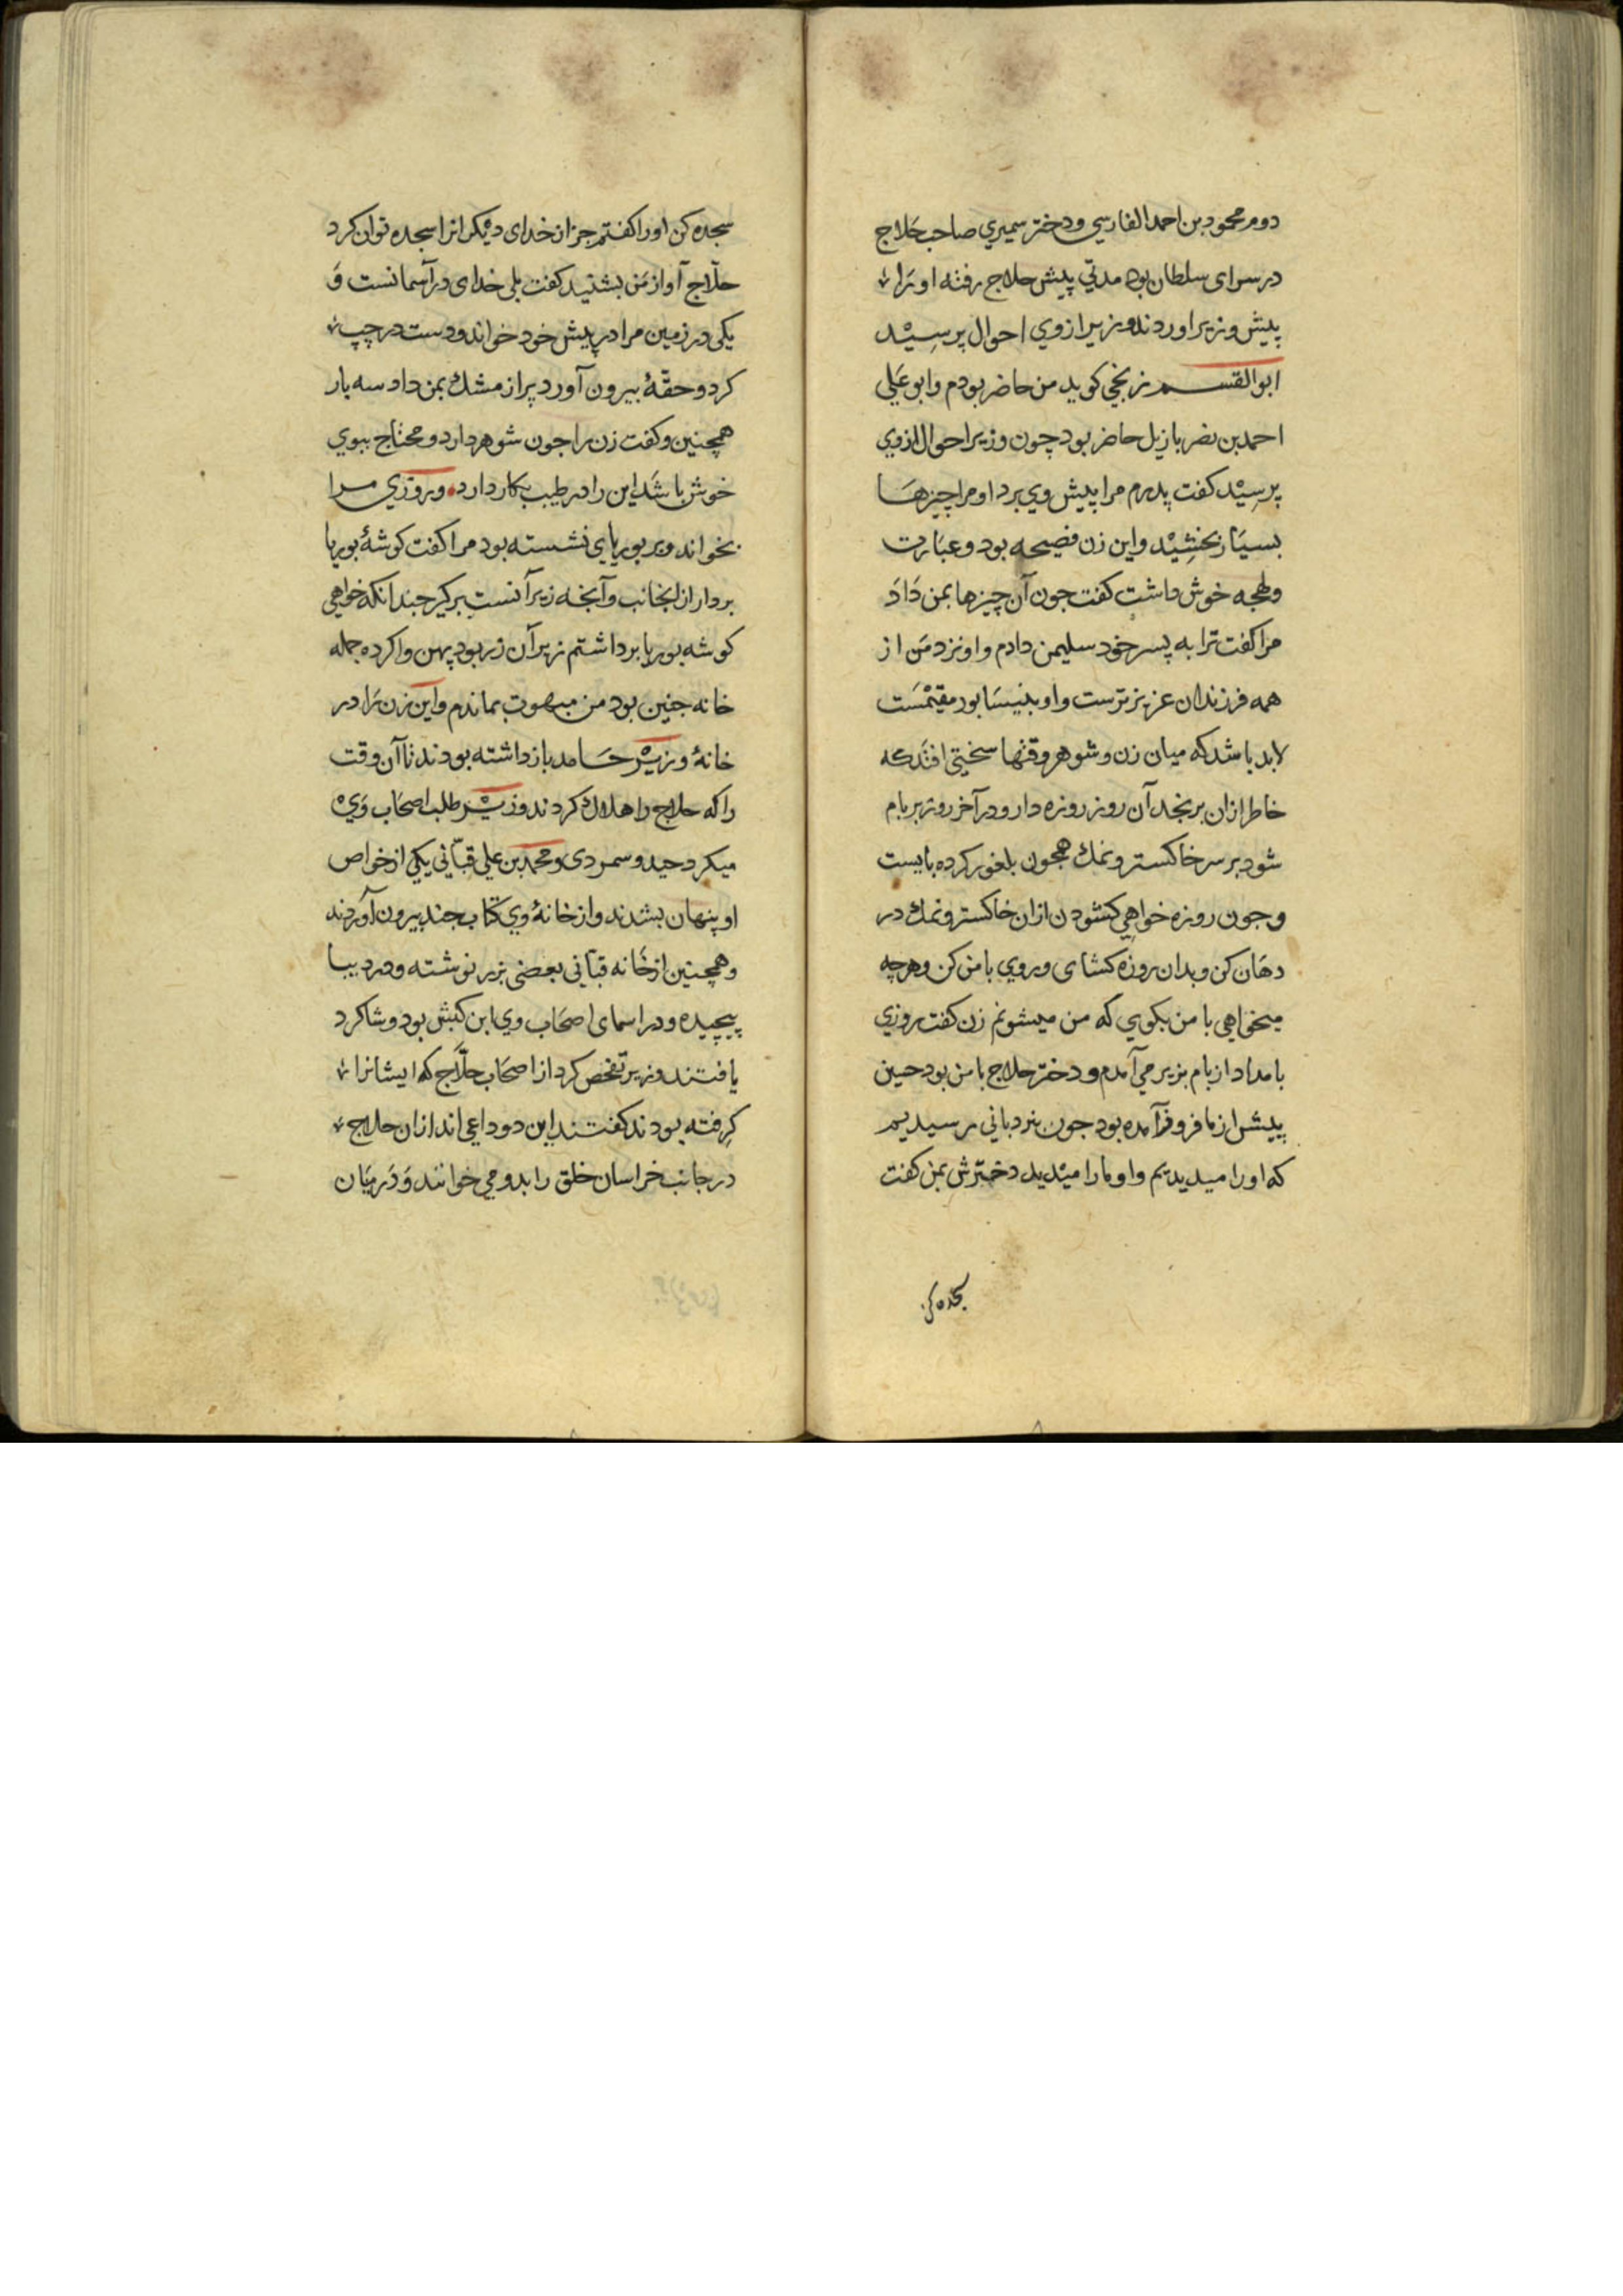 دوم محمود بن احمد الفارسي ودختر سميري صاحب حَلاج
در سرای سلطان بود مدتي پيش حلاج رفته او رَا
پيش وزير اوردند وزير از وي احوال پرسِيْد
ابو القسم زنجي كويد من حاضر بودم وابو عَلي
احمد بن نصر بازيل حاضر بود چون وزير احوال از وي
پرسِيْد كفت پدرم مرا پيش وي برد او مرا چيزهَا
بسيَار بخشِيْد واين زن فصيحه بود وعبَارت
ولهجه خوش داشت كفت جون آن چيزها بمن دَادَ
مرا كفت ترا به پسر خود سليمن دادم واو نزد مَن از
همه فرزندان عزيزترست واو بنيسَابور مقيمْسَت
لابد باشد كه ميان زن وشوهر وقتها سختي افتَد كه
خاطر ازان برنجد آن روز روزه دار ودر آخر روز بر بام
شو و بر سر خاكستر ونمك همجون بلغور كرده بايست
وجون روزه خواهِي كشودن ازان خاكستر ونمك در
دهَان كن وبدان روزه كشای وروي با من كن وهر چه
ميخواهي با من بكوي كه من ميشونم زن كفت روزي
بامداد از بام بزير مي آمدم ودختر حلاج با من بود حسين
پيش از ما فرو آمده بود جون بنردباني رسيديم
كه او را ميديديم واو ما را ميْديد دخترش بمن كفت
سجده كن
سجده كن او را كفتم جز از خدای ديْكرانرا سجده توان كرد
حلّاج آواز مَن بشنيد كفت بلي خدای در آسمانست وَ
يكي در زمين مرا در پيش خود خواند ودست در چپ
كرد وحقّهٔ بيرون آورد پر از مشك بمن داد سه بار
همچنين وكفت زن را جون شوهر دارد ومحتاج ببوي
خوش باشَد اين را در طيب بكار دارد وروزي مرا
بخواند وبر بوريای نشسته بود مرا كفت كوشهٔ بوريا
بردار از انجانب وآنجه زير آنست بركير جندانكه خواهي
كوشه بوريا برداشتم زير آن زر بود پهن واكرده جمله
خانه جنين بود من مبهوت بماندم واين زن رَا در
خانهٔ وزيرْ حَامد بازداشته بودند تا آن وقت
را كه حلاج را هلاك كردند وزيرْ طلب اصحَاب وَي
ميكرد حيدره وسمری ومحمد بن علي قبّاني يكي از خواص
او پنهان بشدند واز خانهٔ وي كتاب جند بيرون آوردند
وهمچنين از خَانه قبّاني بعضي بزر نوشته ودر ديبا
پيچيده ودر اسمای اصحَاب وي ابن كبش بود وشاكر
يافتند وزير تفحص كرد از اصحَاب حلّاج كه ايشانرا
كِرفته بودند كفتند اين دو داعي اند ازان حلاج
در جانب خراسان خلق را بدو مي خوانند وَدَر ميَان